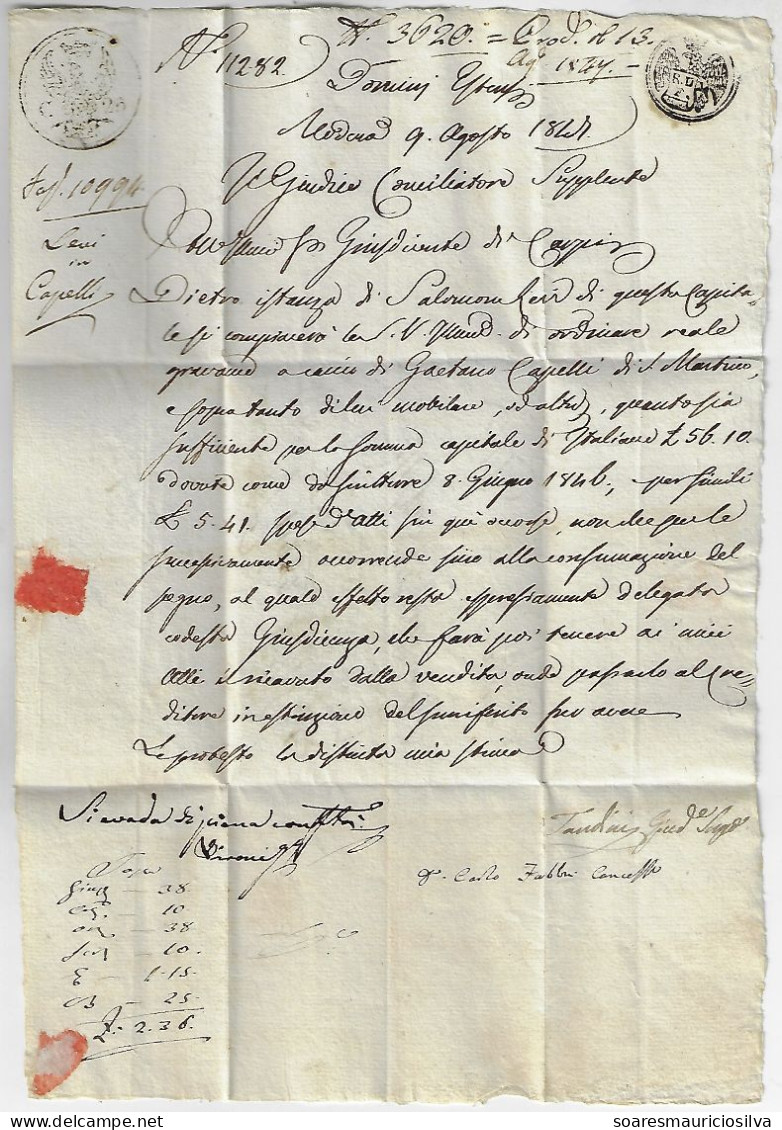 N. 3620. = Prod. il 13.
Ag. 1847. –
N. 11282.
Domini Estensi
Modena 9. Agosto 1847.
Il Giudice Conciliatore Supplente
Fasc. 10994
Levi
in
Capelli
Giusdicente di Carpi
Dietro istanza di Salomone Levi di questa Capita-
le si compiacerà la S. V. di ordinare reale
gravame a carico di Gaetano Capelli di S. Martino,
e sopra tanto di lui mobiliare, od altro, quanto sia
sufficiente per la somma capitale di Italiane £ 56. 10.
dovute come da scritture 8. Giugno 1846, e per simili
£ 5. 41. spese d'atti fin qui occorse, non che per le
successivamente occorrende sino alla consumazione del
pegno, al quale effetto resta espressamente delegata
codesta Giusdicenza, che farà poi tenere ai miei
Atti il ricavato dalla vendita, onde passarlo al Cre-
ditore in estinzione del suo avere
Le protesto la distinta mia stima
Giud.e Supp.e
D. Carlo Fabbri Cancell.e
38
10
38
10
1.15
25
£. 2.36.
soaresmauriciosilva